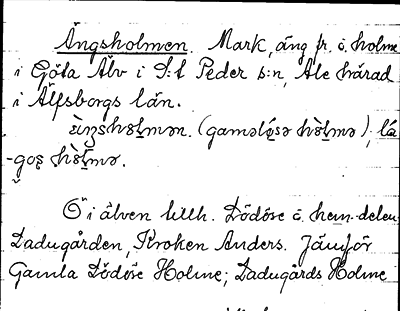 Ängsholmen. Mark, äng fr. ö. holme
i Göta Älv i S:t Peder s:n, Ale härad
i Älfsborgs län.
(gamǝlǿsǝ hòlmǝ), là
-goṣ hòlmǝ.
Ö i älven tillh. Lödöse ö. hem.-delen
Ladugården, Kroken Anders. Jämför
Gamla Lödöse Holme; Ladugårds Holme